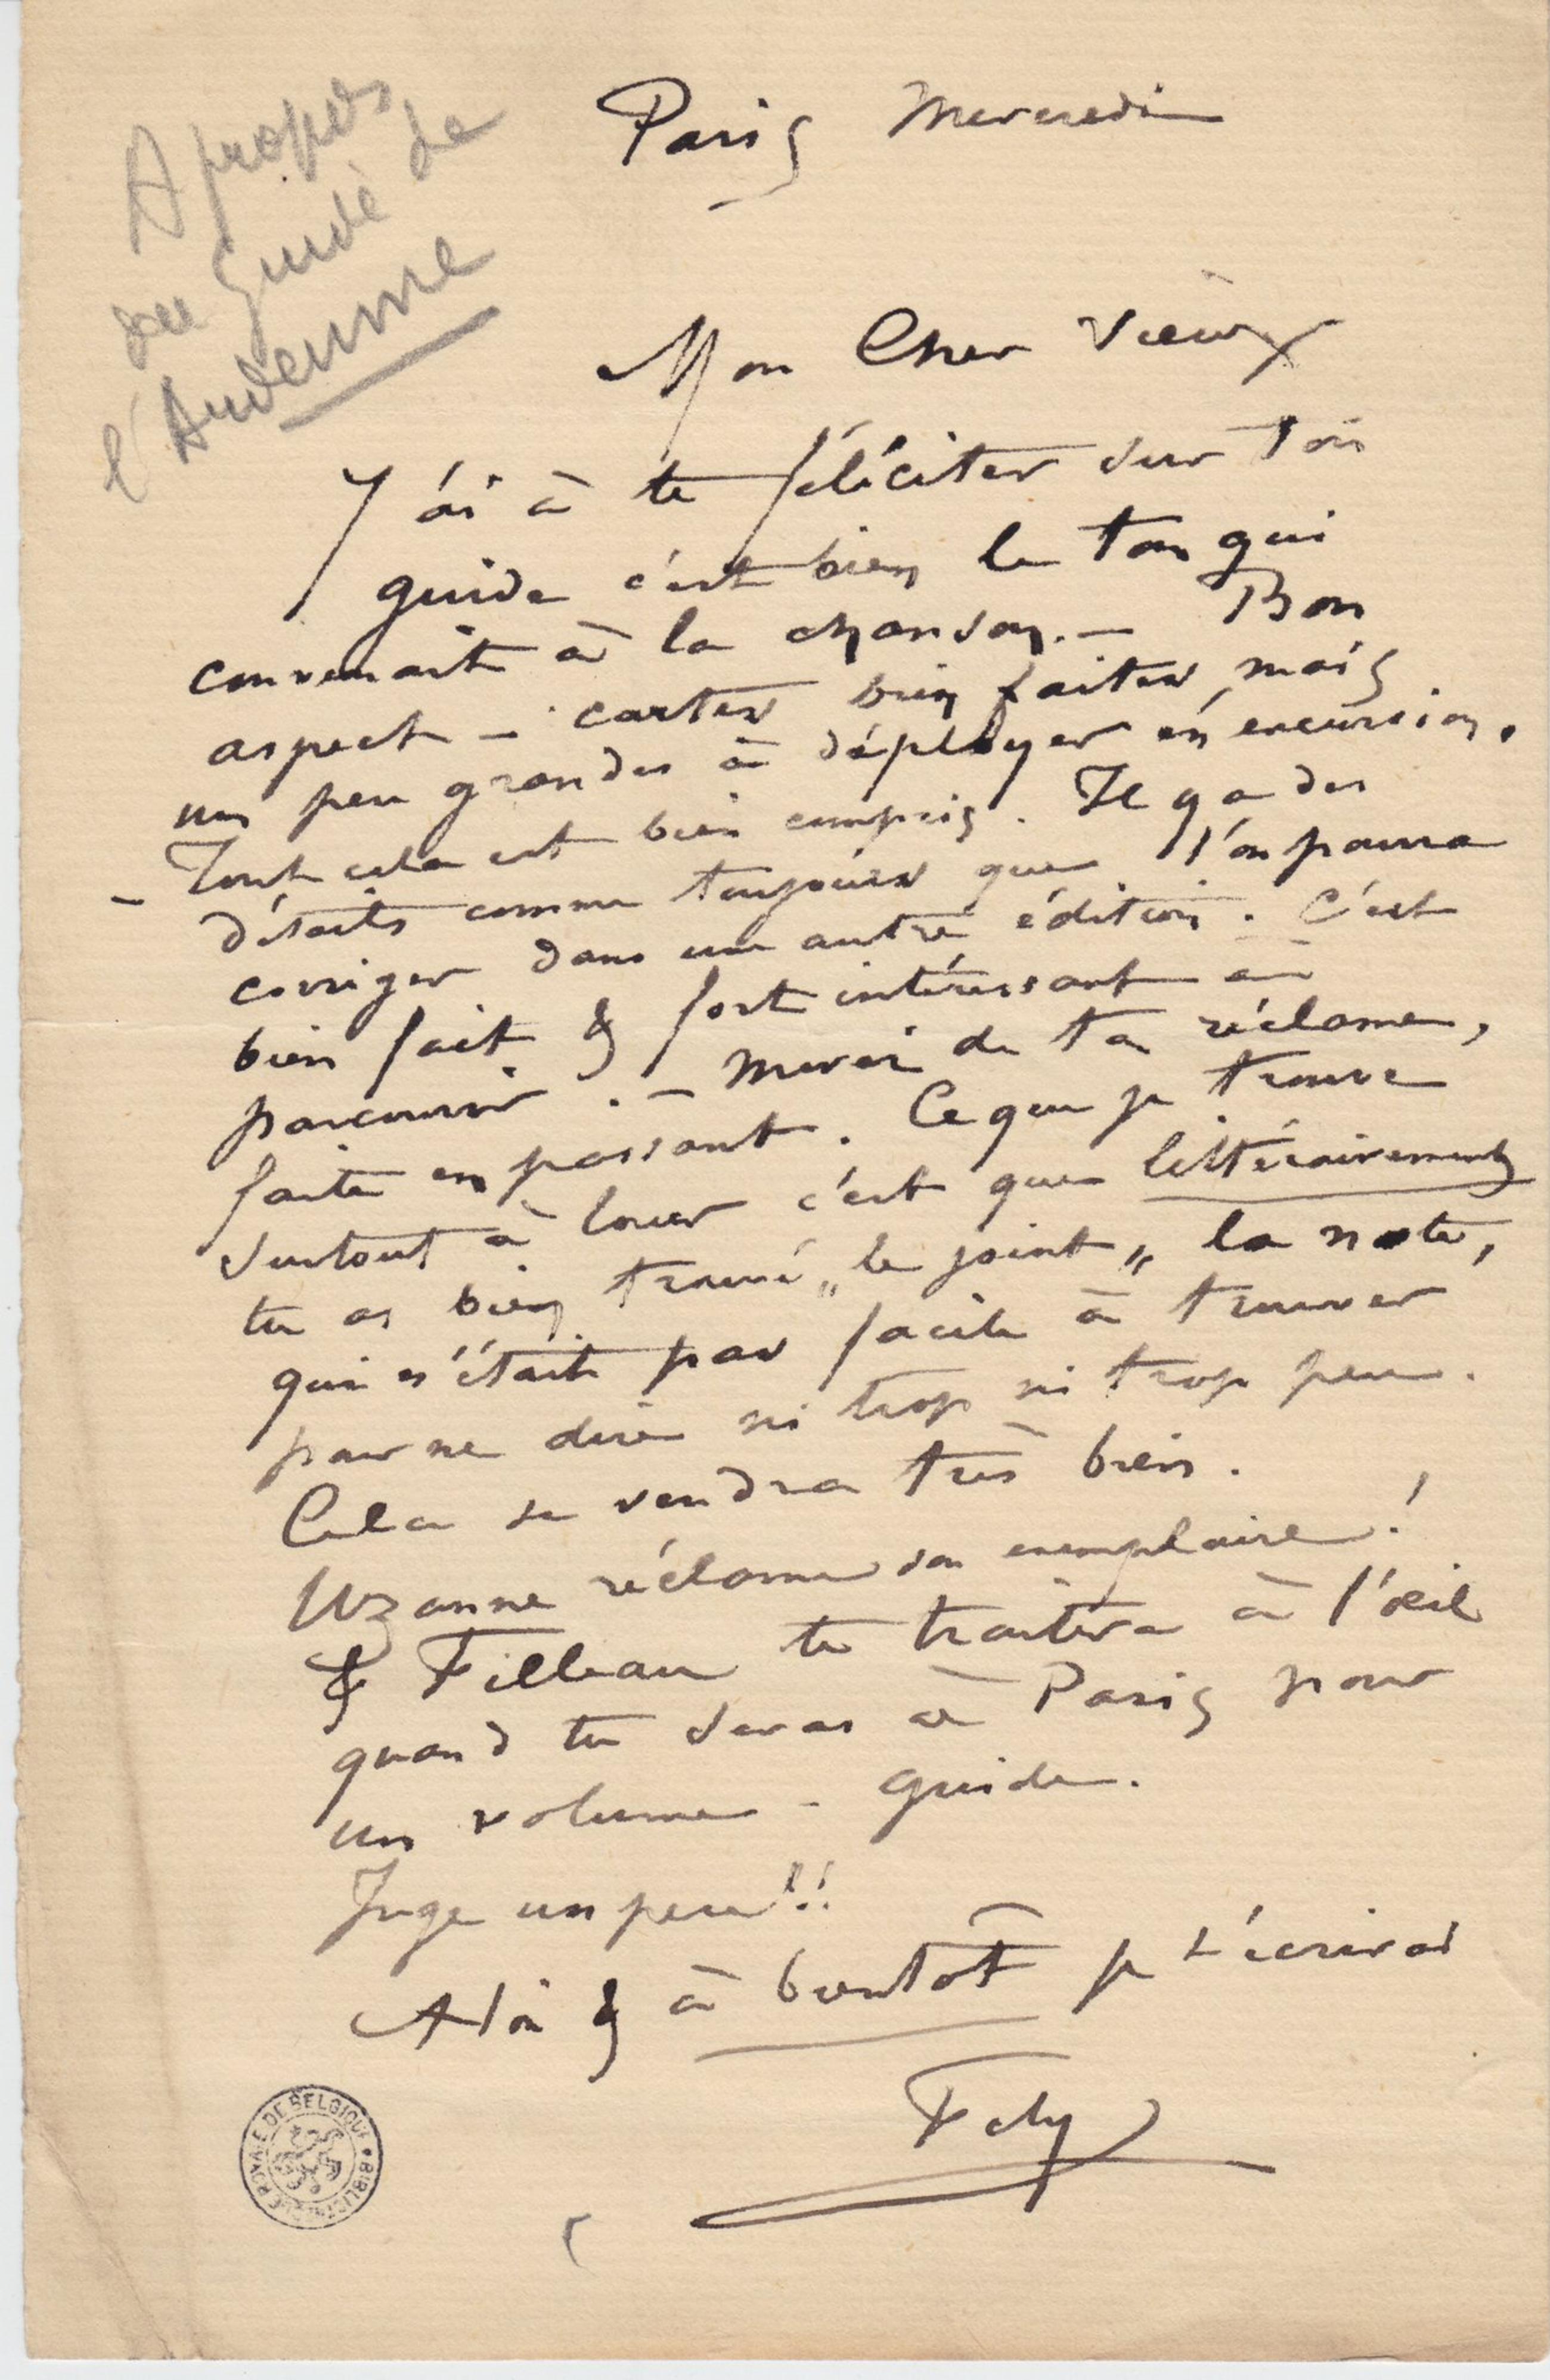 A propos
du Guide de
l'Ardenne
Paris Mercredi
Mon Cher Vieux
J'ai à te féliciter sur ton
guide c'est bien le ton qui
convenait à la chanson. — Bon
aspect — cartes bien faites, mais
un peu grandes à déployer en excursion.
— Tout cela est bien compris. Il y a des
détails comme toujours que l'on pourra
corriger dans une autre édition. C'est
bien fait & fort intéressant à
parcourir. — Merci de ta réclame,
faite en passant. Ce que je trouve
surtout à louer c'est que littérairement
tu as bien trouvé „le joint„ la note,
qui n'était pas facile à trouver
pour ne dire ni trop ni trop peu.
Cela se vendra très bien.
Uzanne réclame son exemplaire!
& Filleau te traitera à l'œil
quand tu seras à Paris pour
un volume - guide.
Juge un peu!!
A toi & à bientôt je t'écrirai
Fély
BIBLIOTHÈQUE ROYALE DE BELGIQUE